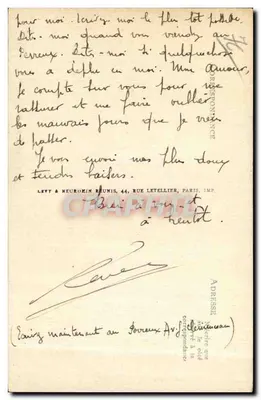 pour moi. Ecrivez moi le plus tôt possible.
Dites-moi quand vous viendrez au
Perreux. Dites-moi si quelque chose
vous a déplu en moi. Mon amour,
je compte sur vous pour me
rassurer et me faire oublier
les mauvais jours que je viens
de passer.
Je vous envoie mes plus doux
et tendres baisers.
LEVY & NEURDEIN REUNIS, 44, RUE LETELLIER, PARIS, IMP.
à bientôt.
(Ecrivez maintenant au Perreux Av. Clemenceau)
CORRESPONDANCE
ADRESSE
CPARAMA